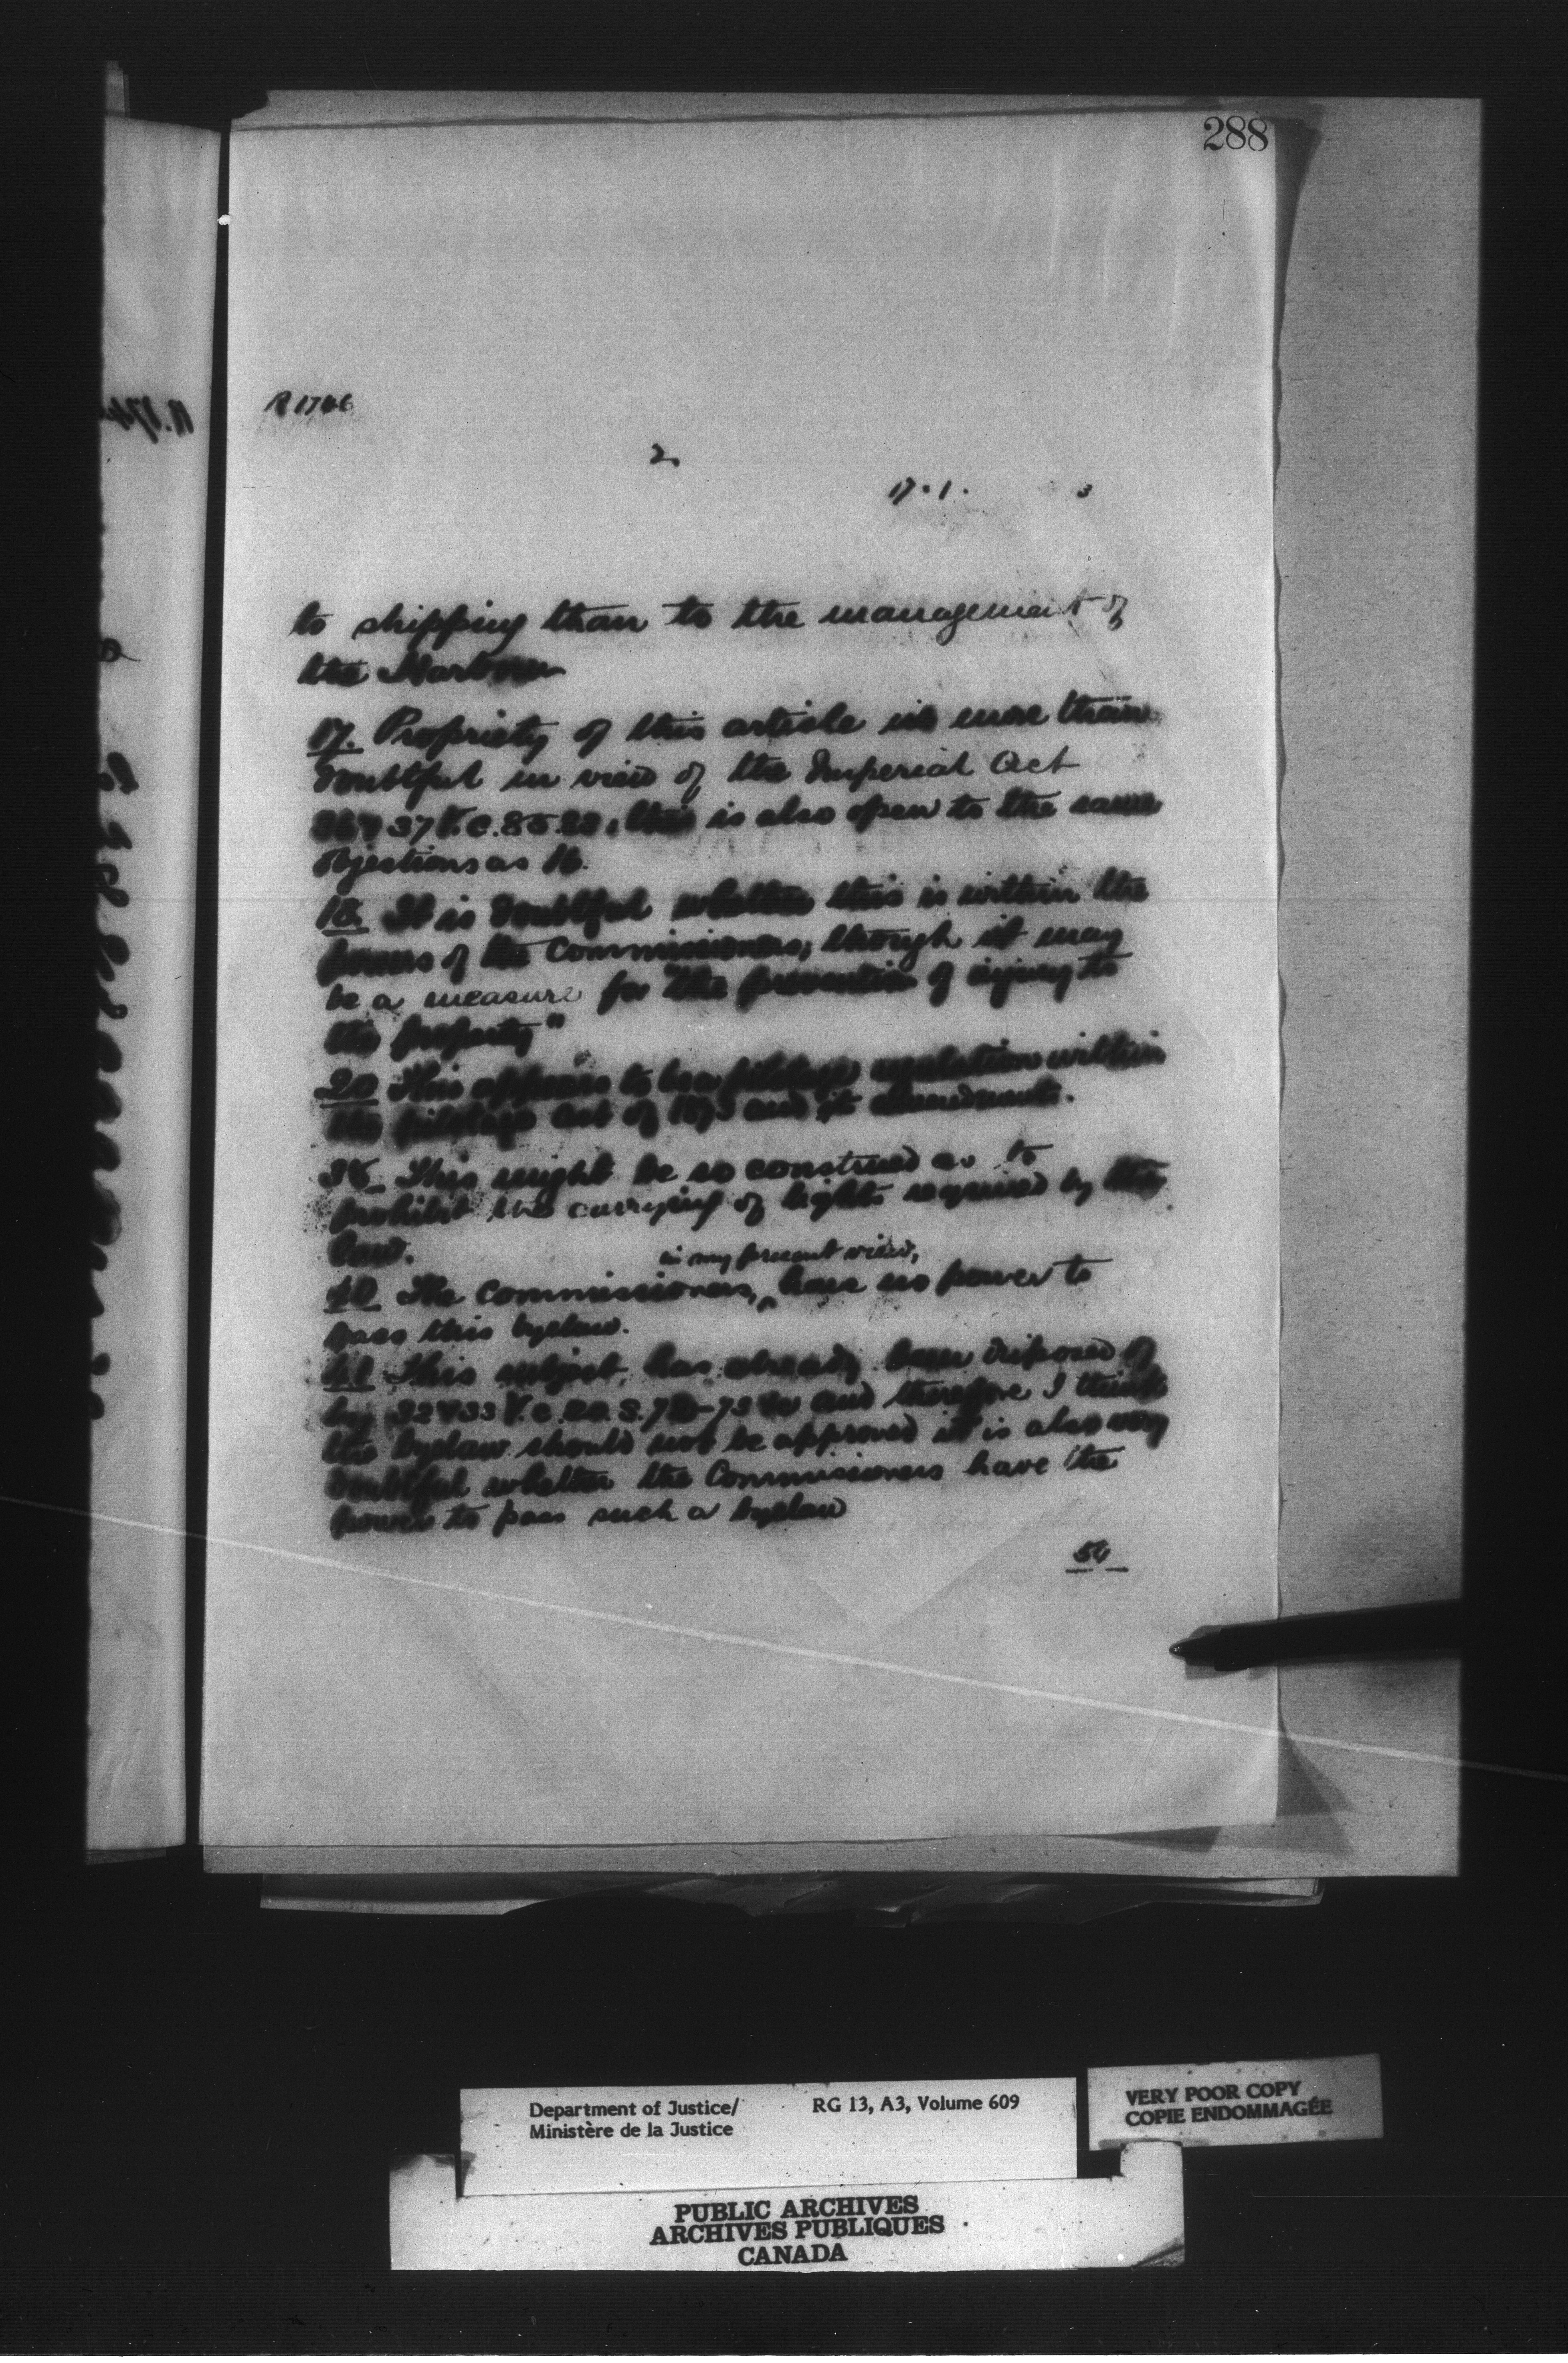 288
R 1746
2
17 . 1 . 3
to shipping than to the management of
the Harbour
17. Propriety of this article is more than
doubtful in view of the Imperial Act
36 & 37 V. c. 85. this is also open to the same
objections as 16.
18. It is doubtful whether this is within the
powers of the Commissioners; though it may
be a measure for "the prevention of injury to
the property"
20 This appears to be a pilotage regulation within
the pilotage act of 1873 and its amendments.
38. This might be so construed as to
prohibit the carrying of lights required by the
law.
in my present view,
40. The Commissioners, ^ have no power to
pass this byelaw.
This subject, has already been disposed of
by 32 & 33 V. c. and therefore I think
the byelaw should not be approved it is also very
doubtful whether the Commissioners have the
power to pass such a byelaw
54
Department of Justice/ RG 13, A3, Volume 609
Ministère de la Justice
VERY POOR COPY
COPIE ENDOMMAGÉE
PUBLIC ARCHIVES
ARCHIVES PUBLIQUES
CANADA